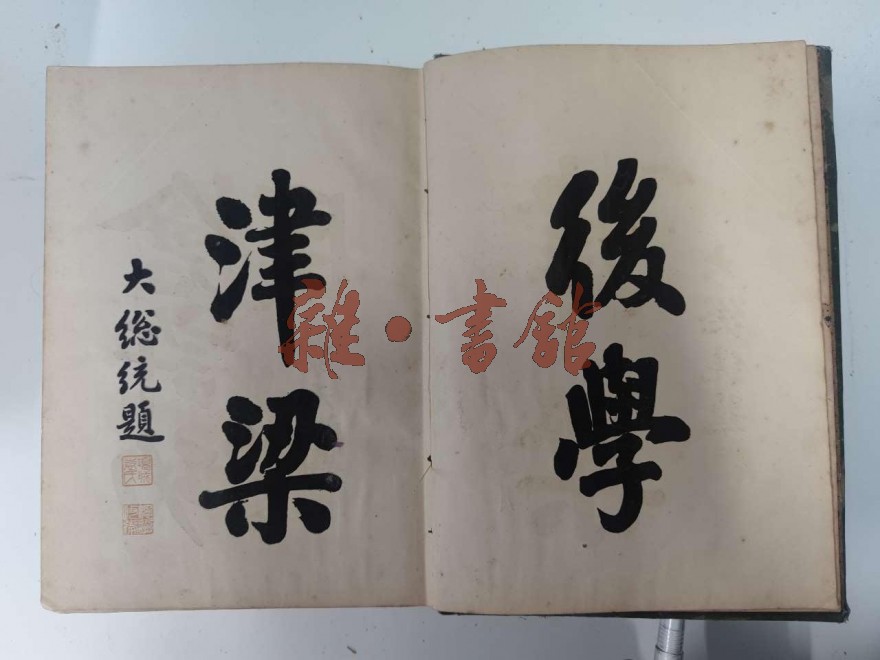 後學
津梁
大総统題
雜·書館